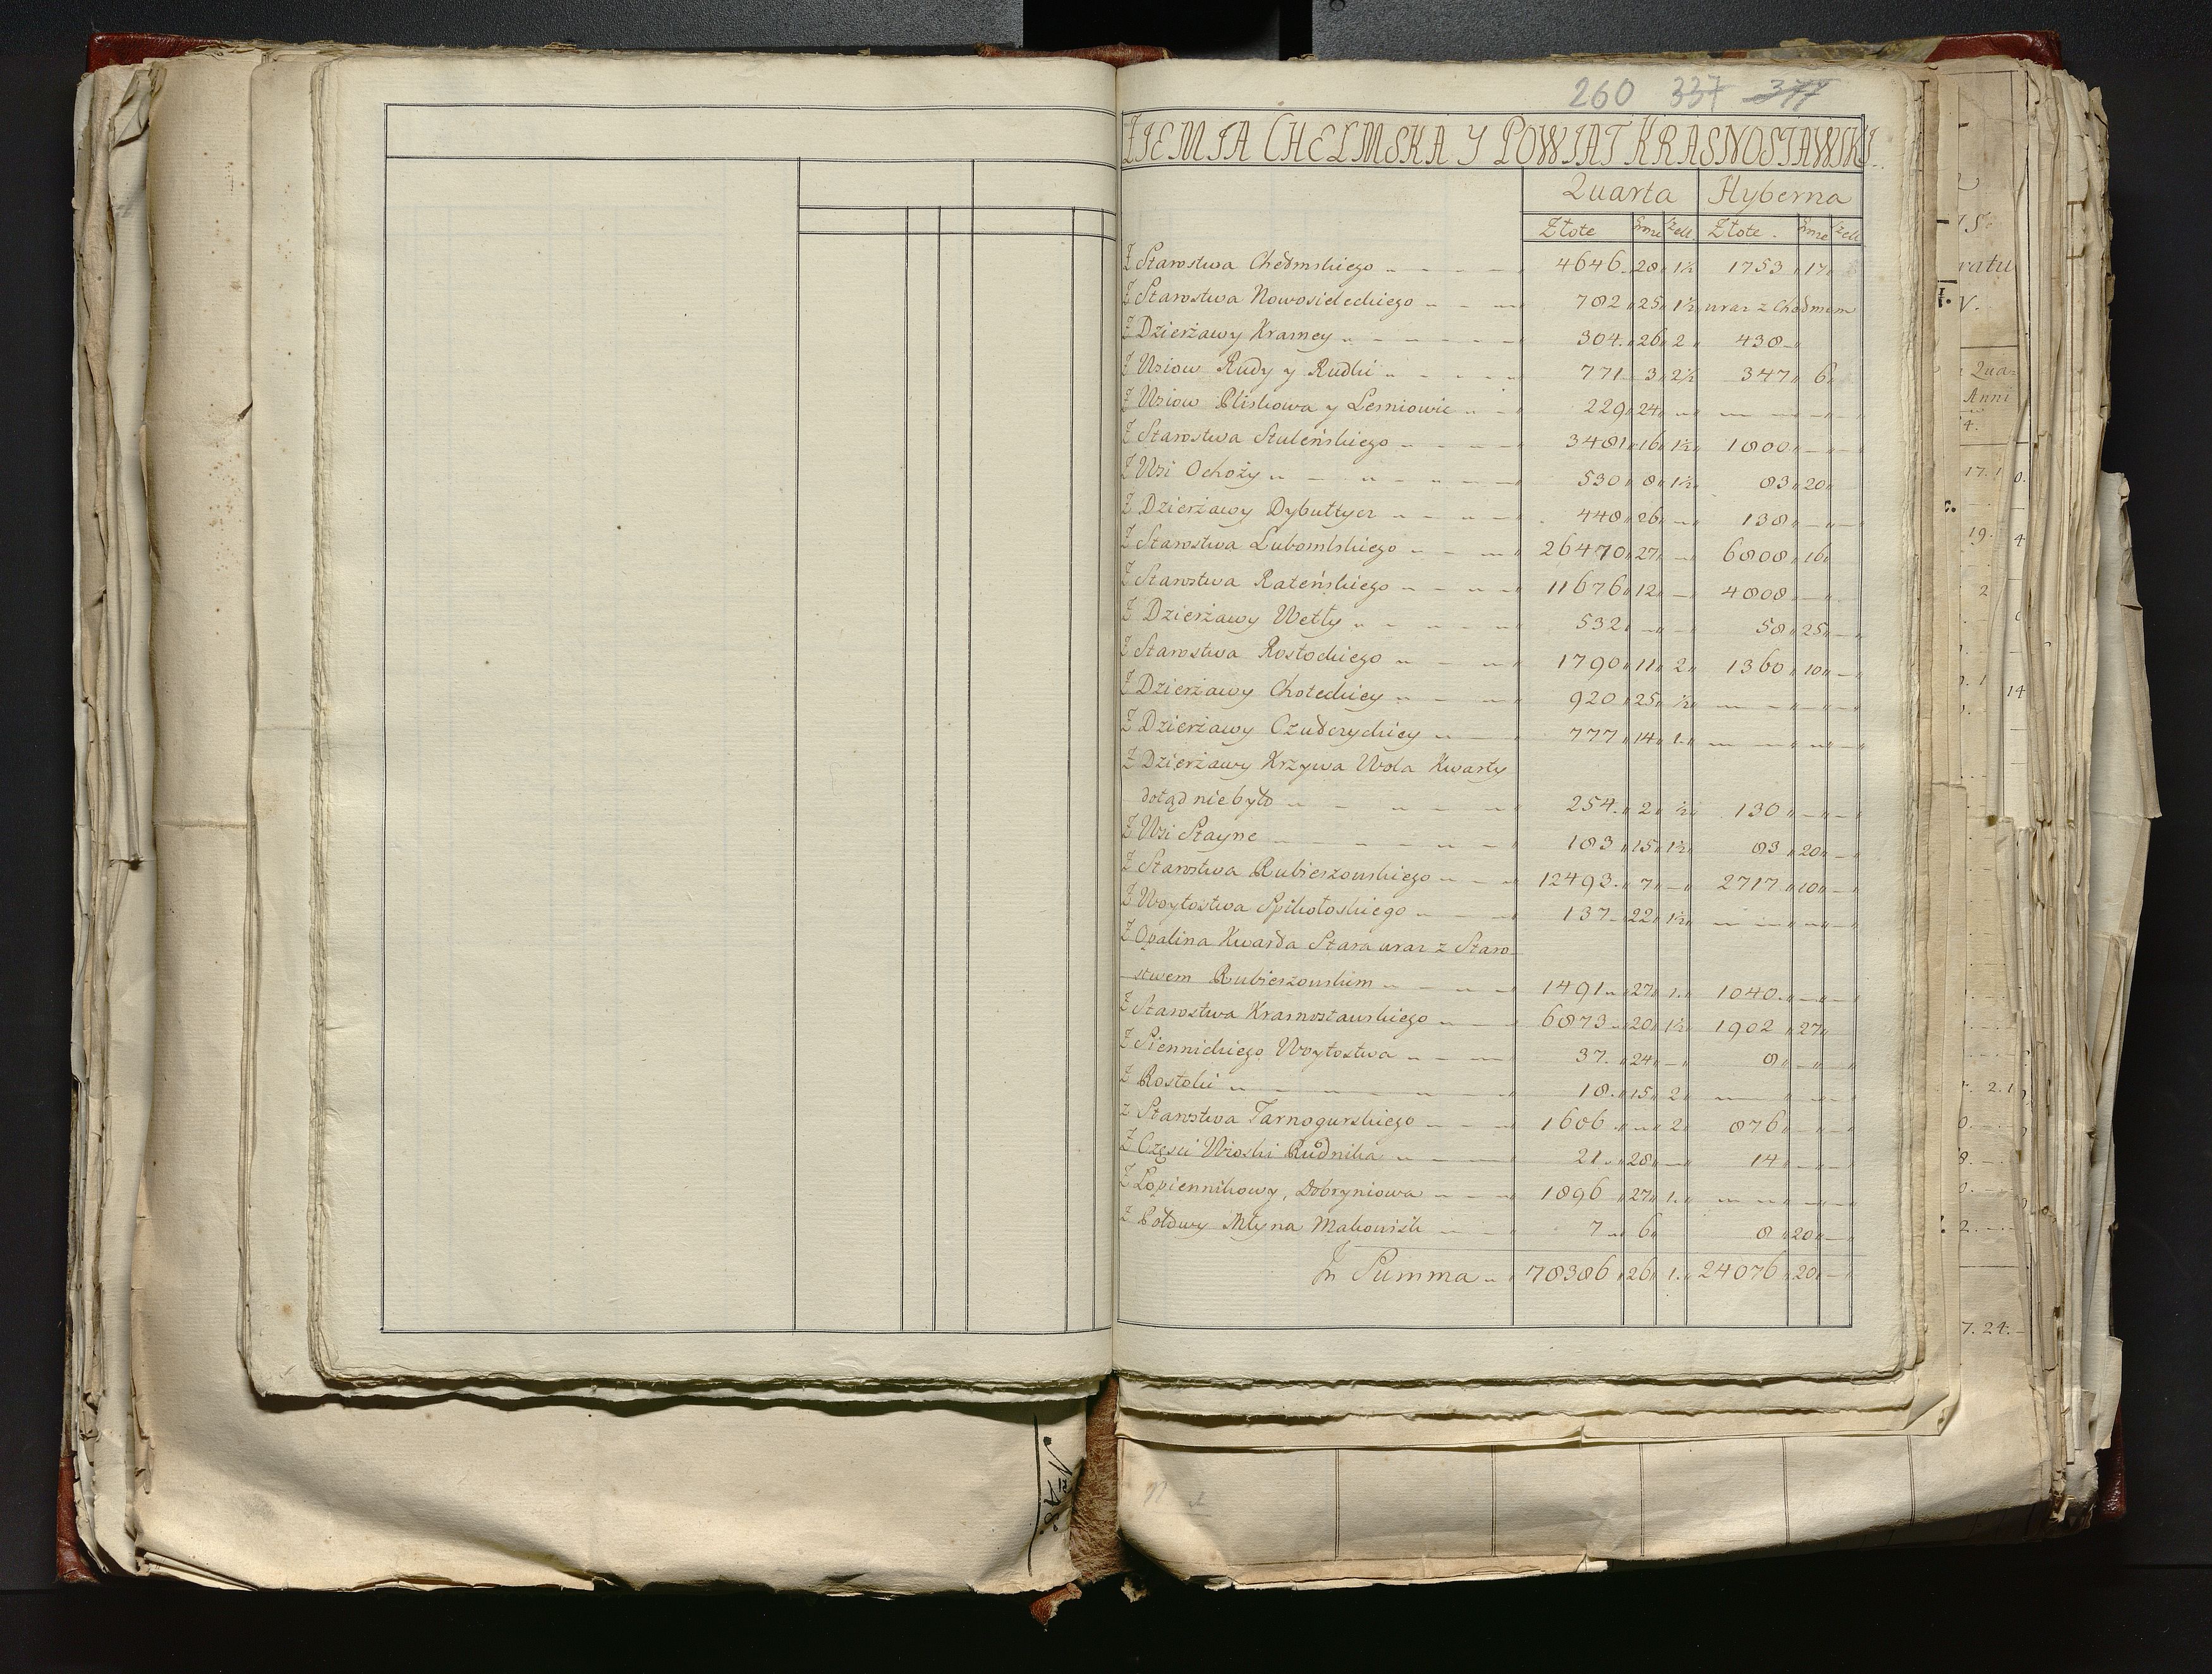 260 337 377
ZIEMIA CHEŁMSKA Y POWIAT KRASNOSTAWSKI.
Quarta Hyberna
Złote Grosze Szel Złote Grosze Szel
Z Starostwa Chełmskiego 4646 28 1½ 1753 17
Z Starostwa Nowosieleckiego 782 25 1½ wraz z Chełmem
Z Dzierżawy Krasney 304 26 2 438
Z Wsiow Rudy y Rudki 771 3 2½ 347 6
Z Wsiow Pliskowa y Lesniowic 229 24
Z Starostwa Stuleńskiego 3481 16 1½ 1800
Z Wsi Ochoży 530 8 1½ 83 20
Z Dzierżawy Dybułtycz 448 26 138
Z Starostwa Lubomlskiego 26470 27 6808 16
Z Starostwa Rateńskiego 11676 12 4808
Z Dzierżawy Wetły 532 58 25
Z Starostwa Rostockiego 1790 11 2 1360 10
Z Dzierżawy Choteckiey 920 25 ½
Z Dzierżawy Czułczyckiey 777 14 1
Z Dzierżawy Krzywa Wola Kwarty
dotąd niebyło 254 2 ½ 130
Z Wsi Stayne 183 15 1½ 83 20
Z Starostwa Rubieszowskiego 12493 7 2717 10
Z Woytostwa Spikołoskiego 137 22 1½
Z Opalina Kwarda Stara wraz z Staro-
stwem Rubieszowskim 1491 27 1 1040
Z Starostwa Krasnostawskiego 6873 20 1½ 1902 27
Z Siennickiego Woytostwa 37 24 8
Z Rostoki 18 15 2
z Starostwa Tarnogurskiego 1606 2 876
Z Częsci Wioski Rudnika 21 28 14
Z Łopiennikowy, Dobryniowa 1896 27 1
Z Połowy Młyna Makowisk 7 6 8 20
In Summa 78386 26 1 24076 20